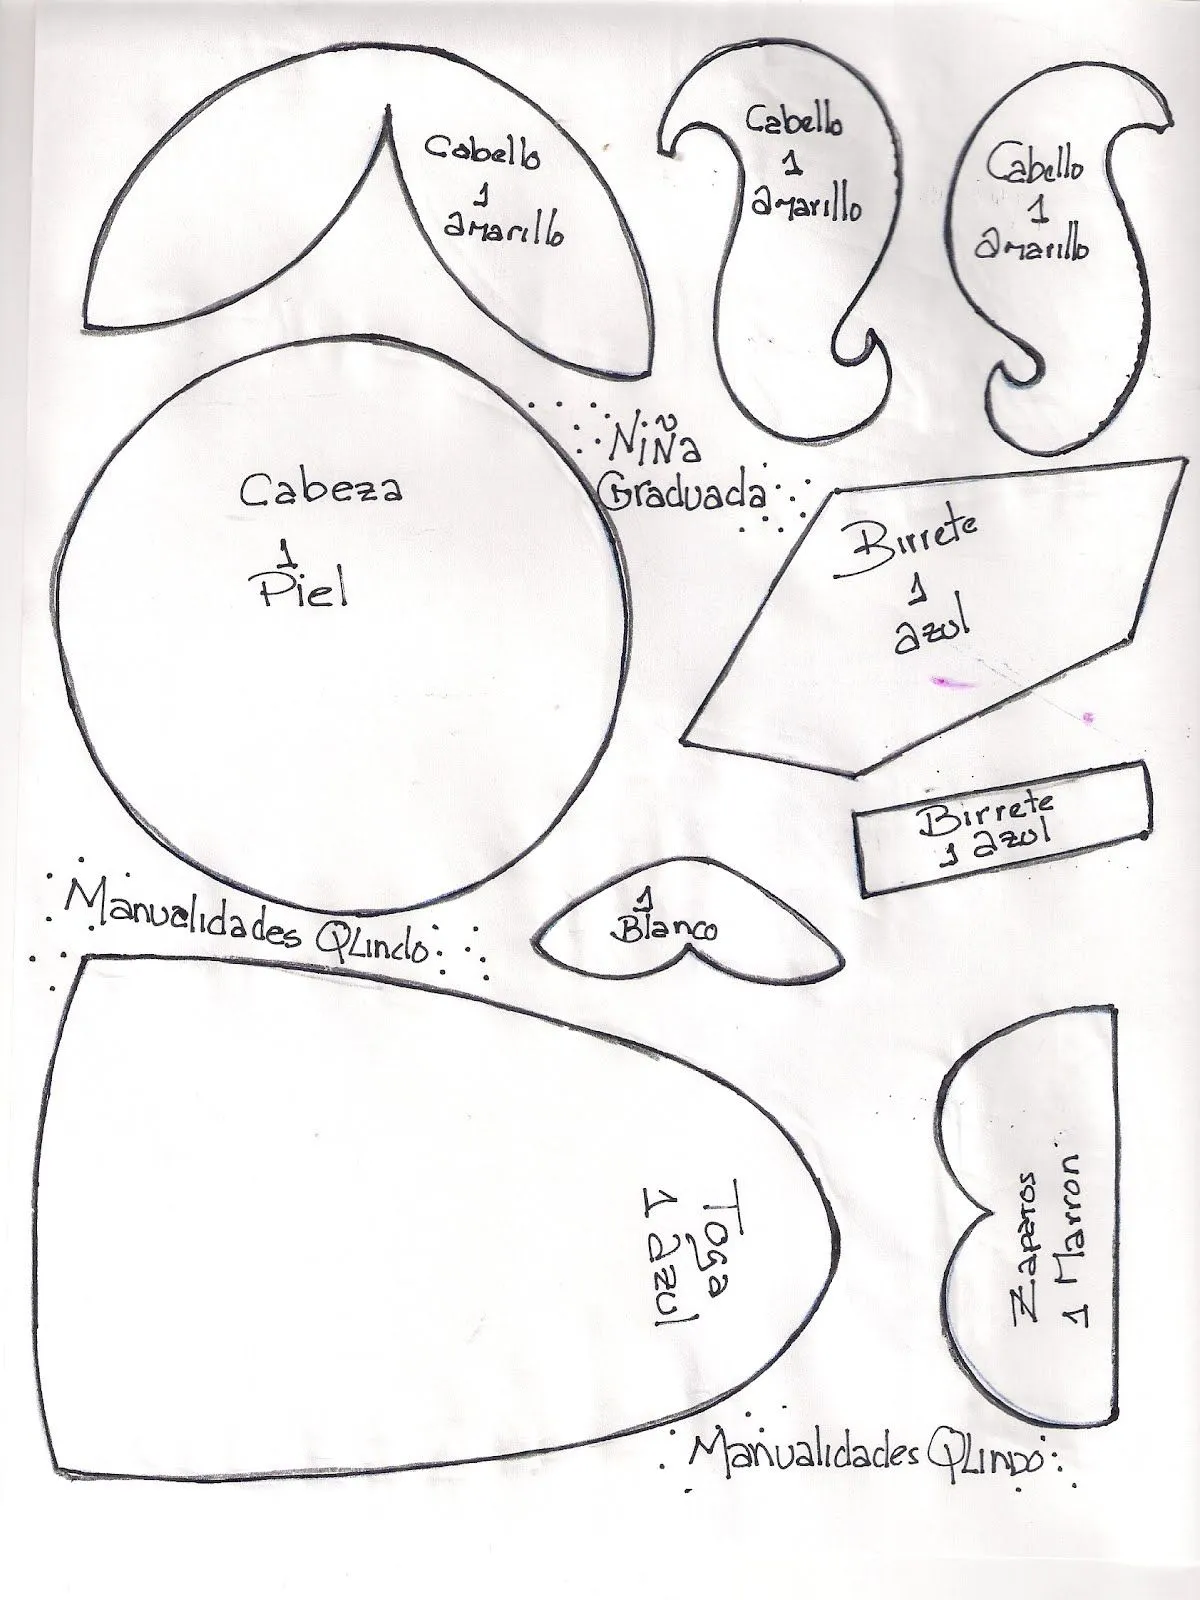 Cabello
1
amarillo
Cabello
1
amarillo
Cabello
1
amarillo
Niña
Graduada
Cabeza
1
Piel
Birrete
1
azul
Birrete
1 azul
1
Blanco
Manualidades QLindo
Toga
1 azul
Zapatos
1 Marron
Manualidades QLindo